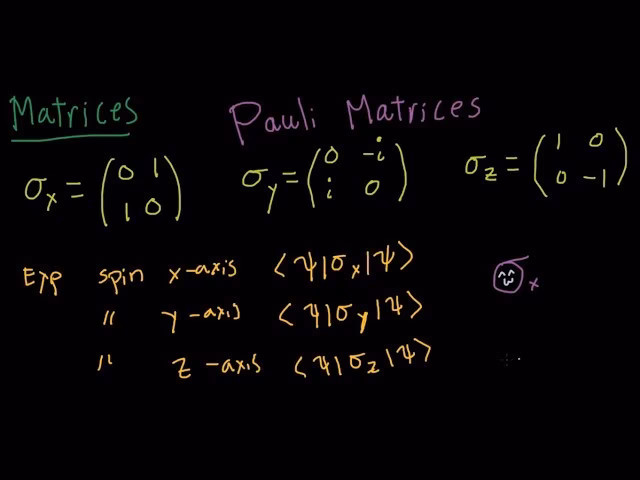 Matrices Pauli Matrices
σx = (0 1 1 0) σy = (0 -i i 0) σz = (1 0 0 -1)
Exp spin x-axis ⟨ψ|σx|ψ⟩ σx
" y-axis ⟨ψ|σy|ψ⟩
" z-axis ⟨ψ|σz|ψ⟩